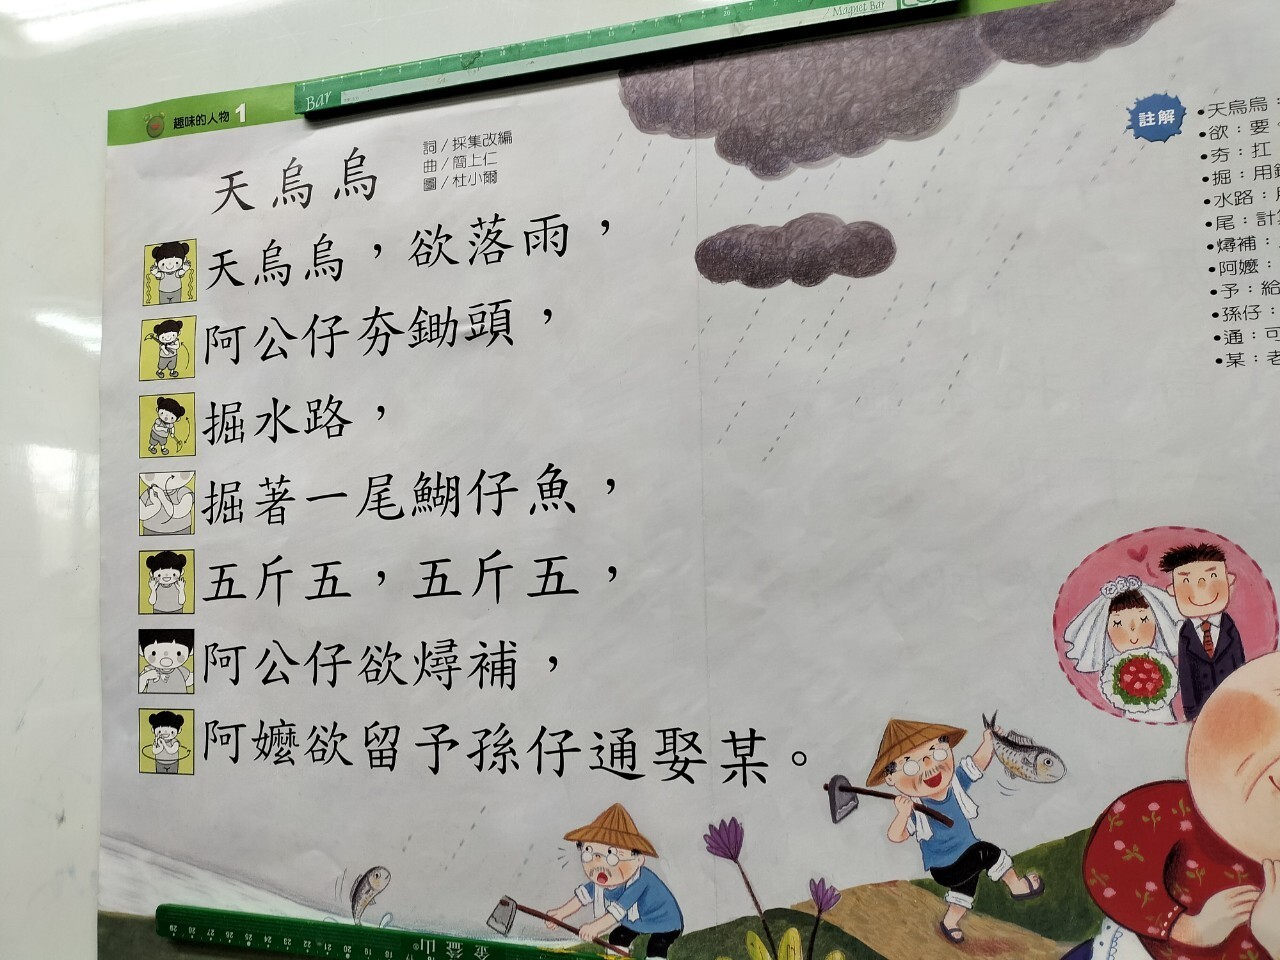 Bar
Magnet Bar
趣味的人物 1
天烏烏
詞／採集改編
曲／簡上仁
圖／杜小爾
天烏烏，欲落雨，
阿公仔夯鋤頭，
掘水路，
掘著一尾鰗仔魚，
五斤五，五斤五，
阿公仔欲燖補，
阿嬤欲留予孫仔通娶某。
註解
•天烏烏：
•欲：要。
•夯：扛
•掘：用
•水路：
•尾：計
•燖補：
•阿嬤：
•予：給
•孫仔：
•通：可
•某：老
金益山